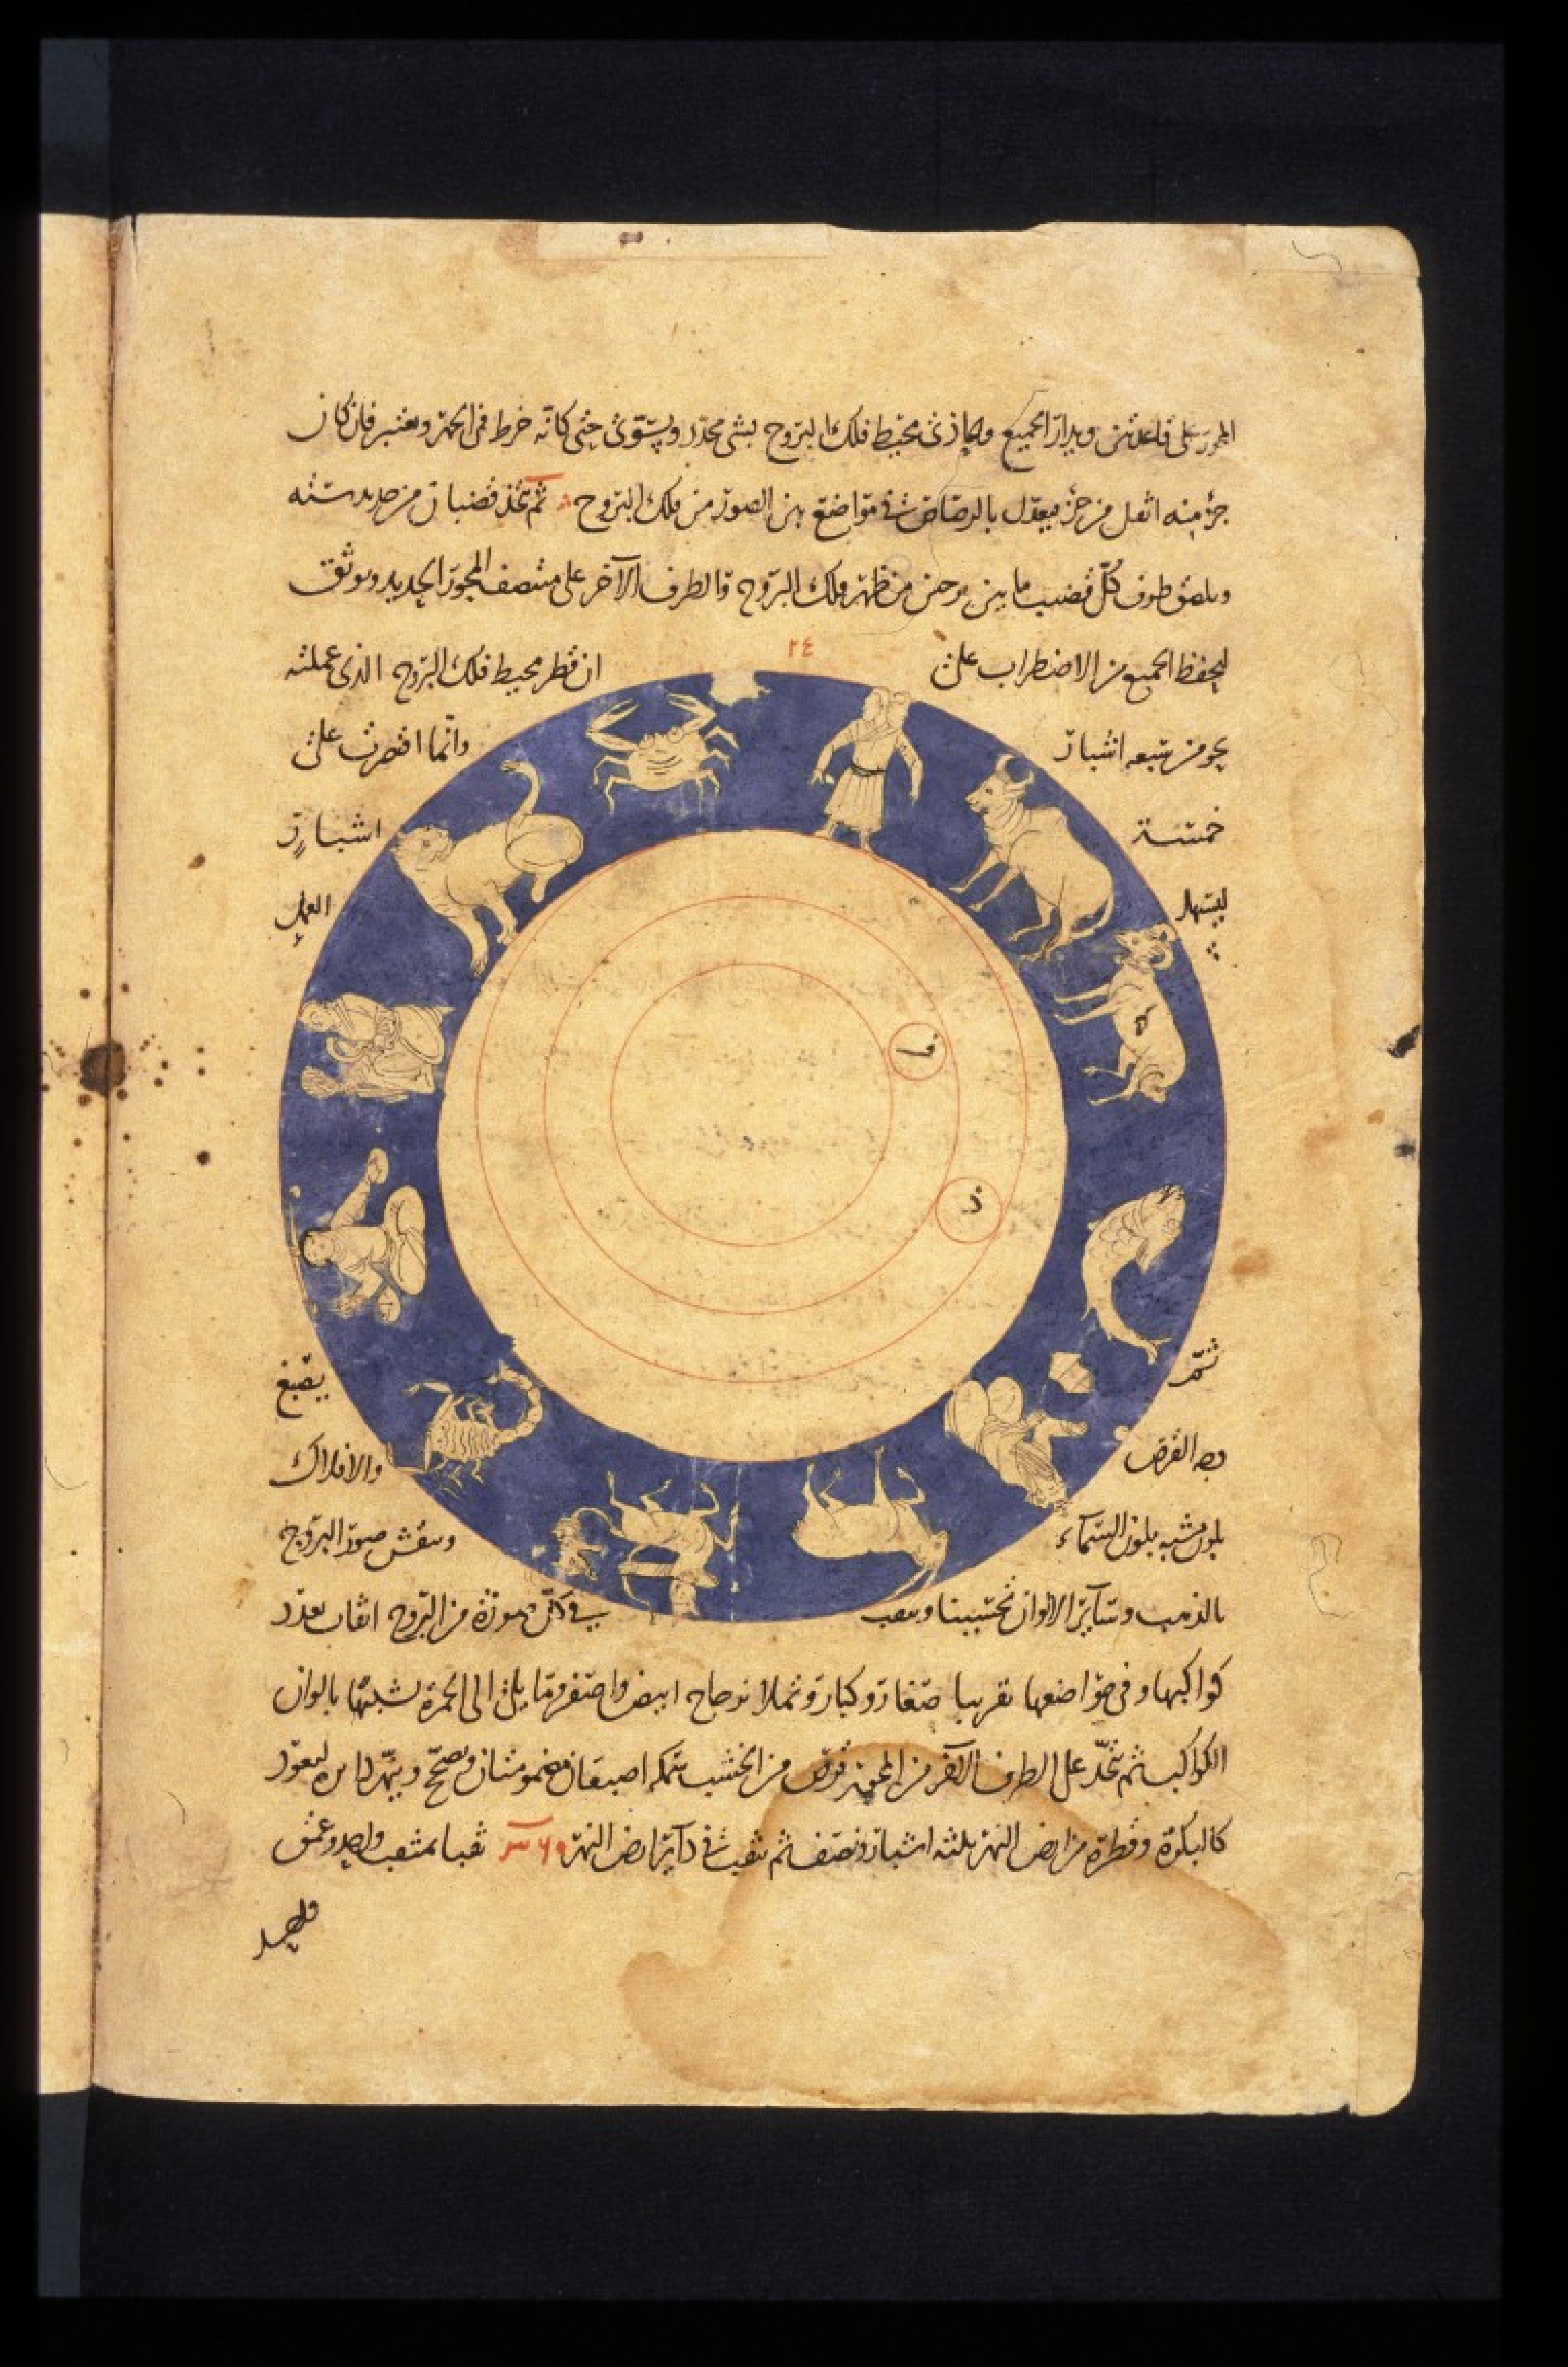 المحور على قاعدتين ويدار الجميع وبحاذى محيط فلك البروج بشى محدد ويسوى حتى كانه خرط فى الجهر ويعتبر فان كان
جزء منه اثقل من جزء فيعدل بالرصاص فى مواضع بين الصور من فلك البروج ثم تتخذ قضبان من حديد ستة
ويلصق طرف كل قضيب ما بين برجين من ظهر فلك البروج والطرف الآخر على منتصف المحور الحديد ويوثق
٢٤
ليحفظ الجميع من الاضطراب على ان قطر محيط فلك البروج الذى عملته
نحو من سبعة اشبار وانما اقتصرت على
خمسة اشبار
ليسهل العمل
ف
ذ
ثم يصبغ
وجه القرص والافلاك
بلون شبه بلون السماء وينقش صور البروج
بالذهب وسائر الالوان تحسينا ويثقب فى كل صورة من البروج اثقاب بعدد
كواكبها وفى مواضعها تقريبا صغار وكبار وتملا زجاج ابيض واصفر وما يلى الى الحمرة لشبهها بالوان
الكواكب ثم تتخذ على الطرف الآخر من المحور قرص من الخشب سمكه اصبعان مضمومتان ويصحح
كالبكرة وقطره من ارض النهر ثلثة اشبار ونصف ثم يثقب فى دائر ارض النهر ثقبا بمثقب واحد وعمق
واحد